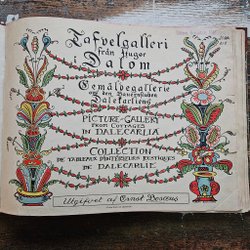 Tafvelgalleri
från Stugor
i Dalom
Gemäldegallerie
aus den Bauernstuben
Dalekarliens
PICTURE-GALLERY
FROM COTTAGES
IN DALECARLIA
COLLECTION
DE TABLEAUX D'INTÉRIEURS RUSTIQUES
DE DALECARLIE
Utgifvet af Ernst